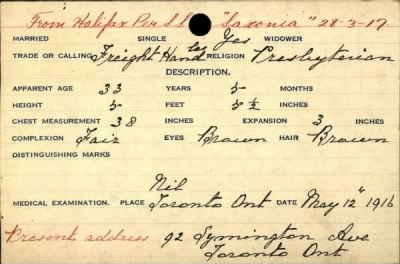 From Halifax Per S.S. "Saxonia" 28-3-17
MARRIED SINGLE Yes WIDOWER
TRADE OR CALLING Freight Handler RELIGION Presbyterian
DESCRIPTION.
APPARENT AGE 33 YEARS 5 MONTHS
HEIGHT 5 FEET 5½ INCHES
CHEST MEASUREMENT 38 INCHES EXPANSION 3 INCHES
COMPLEXION Fair EYES Brown HAIR Brown
DISTINGUISHING MARKS
Nil
MEDICAL EXAMINATION. PLACE Toronto Ont DATE May 12" 1916
Present address 92 Symington Ave
Toronto Ont